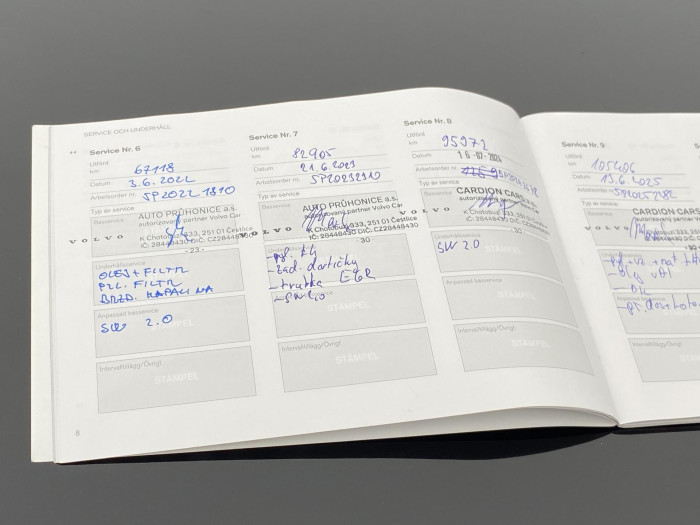 SERVICE OCH UNDERHÅLL
Service Nr. 6
Utförd
km 67118
Datum 3.6.2022
Arbetsorder nr. SP2022 1810
Typ av service
Basservice
AUTO PRŮHONICE a.s.
autorizovaný partner Volvo Car
VOLVO
K Chotobuzi 333, 251 01 Čestlice
IČ: 28448430 DIČ: CZ28448430
- 23 -
Underhållsservice
OLEJ + FILTR
PYL. FILTR
BRZD. KAPALINA
Anpassad basservice
SW 2.0
Intervalltillägg/Övrigt
STÄMPEL
8
Service Nr. 7
Utförd
km 82905
Datum 21.6.2023
Arbetsorder nr. SP20232310
Typ av service
AUTO PRŮHONICE a.s.
autorizovaný partner Volvo Car
VOLVO
K Chotobuzi 333, 251 01 Čestlice
IČ: 28448430 DIČ: CZ28448430
- 30 -
- zad. destičky
- trubka EGR
- SW 2.0
STÄMPEL
Intervalltillägg/Övrigt
STÄMPEL
Service Nr. 8
Utförd
km 95972
Datum 16-07-2024
Arbetsorder nr.
Typ av service
Basservice
CARDION CARS
VOLVO
K Chotobuzi 333, 251 01
IČ: 28448430 DIČ: CZ
- 30 -
Underhållsservice
SW 2.0
Anpassad basservice
STÄMPEL
Intervalltillägg/Övrigt
STÄMPEL
Service Nr. 9
Utförd
km 105406
Datum 13.6.2025
Arbetsorder nr.
Typ av service
Basservice
CARDION CARS
VOLVO
333, 251 01
IČ: 28448430 DIČ:
- 30 -
Anpassad basservice
Intervalltillägg/Övrigt